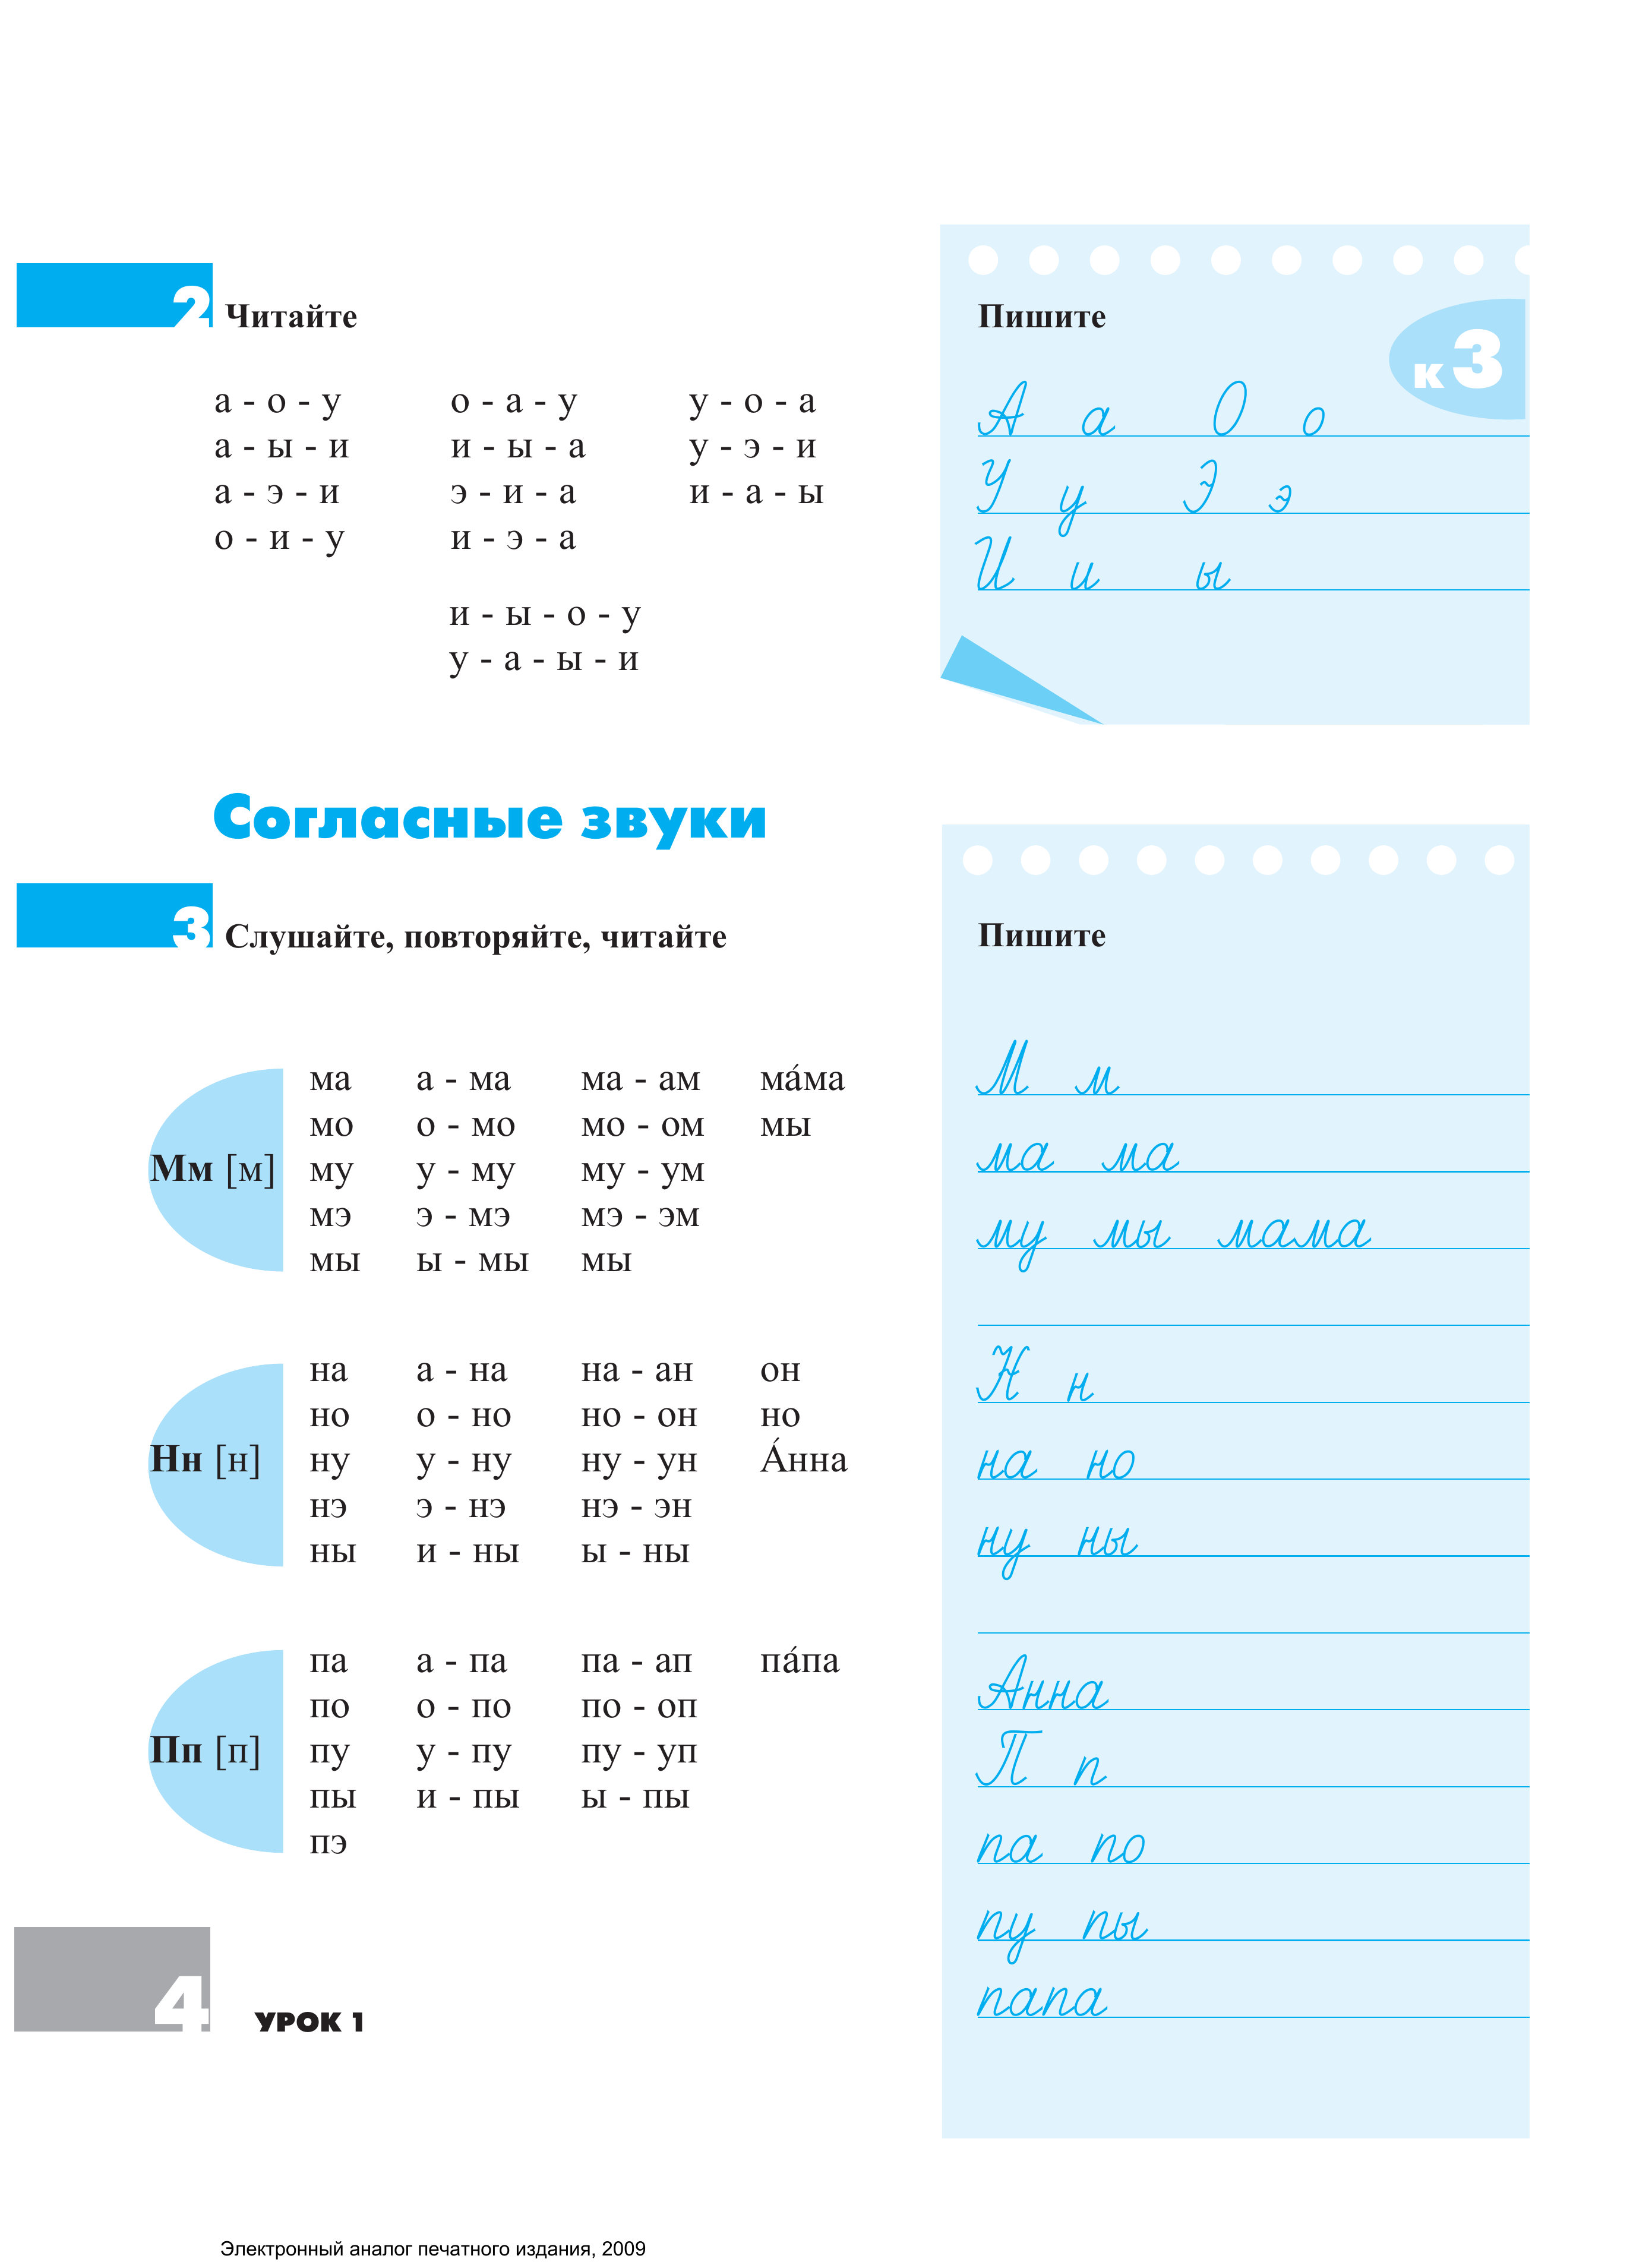 2 Читайте
а - о - у о - а - у у - о - а
а - ы - и и - ы - а у - э - и
а - э - и э - и - а и - а - ы
о - и - у и - э - а
и - ы - о - у
у - а - ы - и
Пишите
к 3
А а О о
У у Э э
И и ы
Согласные звуки
3 Слушайте, повторяйте, читайте
Мм [м]
ма а - ма ма - ам ма́ма
мо о - мо мо - ом мы
му у - му му - ум
мэ э - мэ мэ - эм
мы ы - мы мы
Нн [н]
на а - на на - ан он
но о - но но - он но
ну у - ну ну - ун А́нна
нэ э - нэ нэ - эн
ны и - ны ы - ны
Пп [п]
па а - па па - ап па́па
по о - по по - оп
пу у - пу пу - уп
пы и - пы ы - пы
пэ
Пишите
М м
ма ма
му мы мама
Н н
на но
ну ны
Анна
П п
па по
пу пы
папа
4 УРОК 1
Электронный аналог печатного издания, 2009